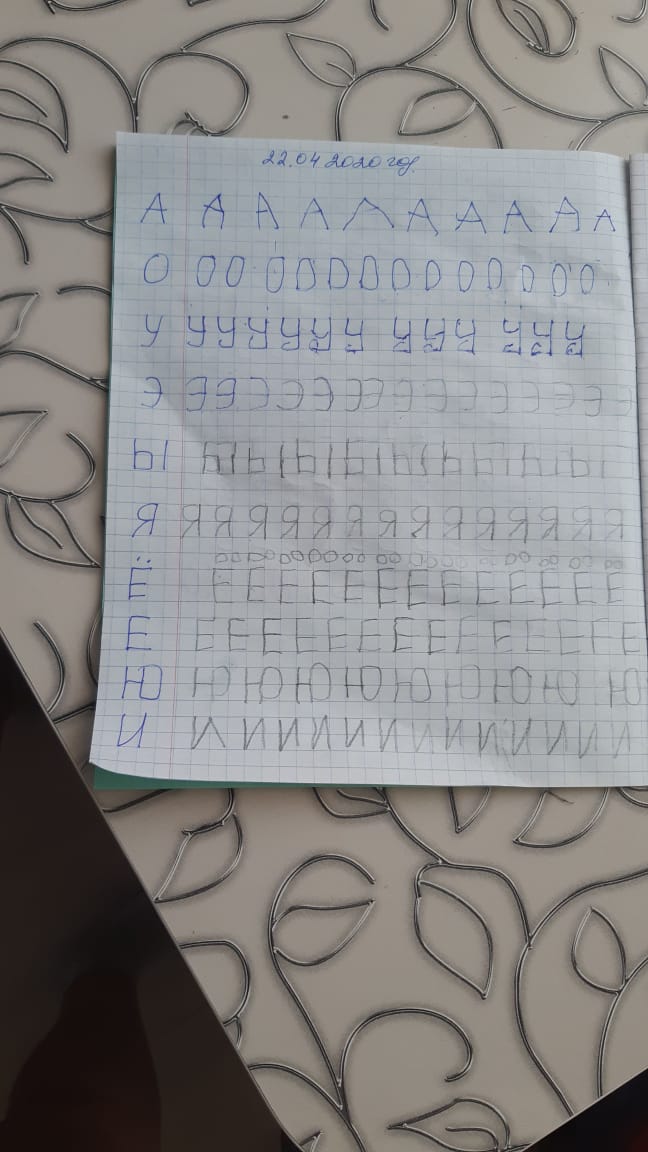 22.04 2020 год.
А А А А А А А А А А
О О О О О О О О О О О О О О
У У У У У У У У У У У У У
Э Э Э Э Э Э Э Э Э Э Э Э Э Э Э
Ы Ы Ы Ы Ы Ы Ы Ы Ы
Я Я Я Я Я Я Я Я Я Я Я Я Я Я Я
Ё Ё Ё Ё Ё Ё Ё Ё Ё Ё Ё Ё Ё Ё
Е Е Е Е Е Е Е Е Е Е Е Е Е Е Е
Ю Ю Ю Ю Ю Ю Ю Ю Ю Ю
И И И И И И И И И И И И И И